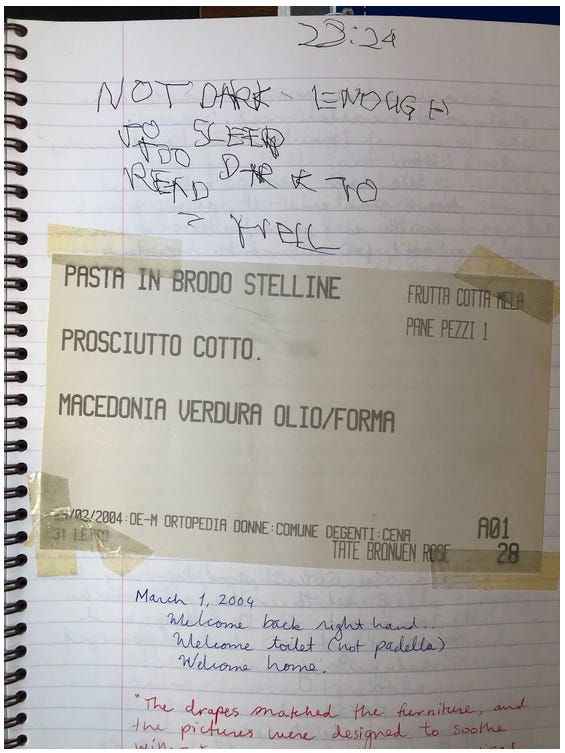 23:24
NOT DARK ENOUGH
TO SLEEP
TOO DARK TO
READ
WELL
PASTA IN BRODO STELLINE
FRUTTA COTTA MELA
PANE PEZZI 1
PROSCIUTTO COTTO.
MACEDONIA VERDURA OLIO/FORMA
25/02/2004:DE-M ORTOPEDIA DONNE:COMUNE DEGENTI:CENA
A01
31 LETTO
TATE BRONWEN ROSE
28
March 1, 2004
Welcome back right hand...
Welcome toilet (not padella)
Welcome home.
"The drapes matched the furniture, and
the pictures were designed to soothe